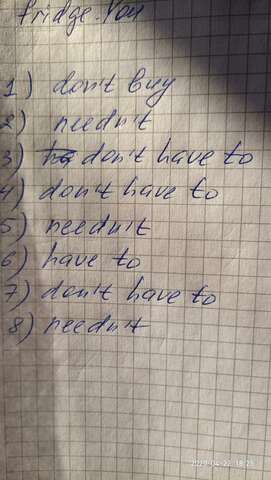 fridge. You
1) don't buy
2) needn't
3) don't have to
4) don't have to
5) needn't
6) have to
7) don't have to
8) needn't